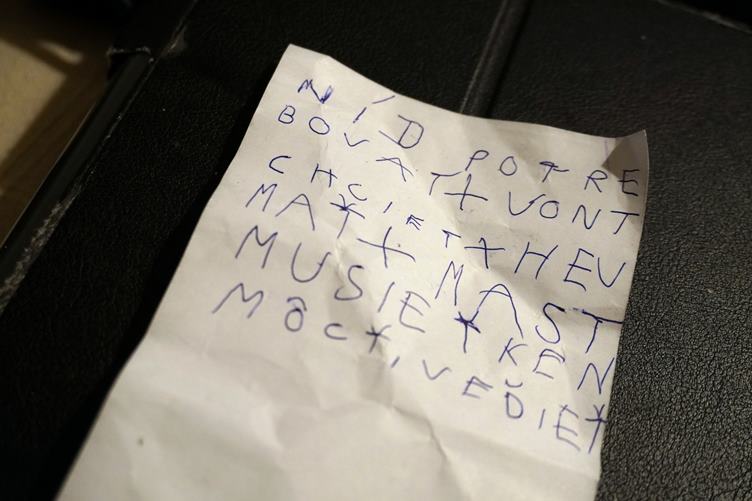 NÍD POTRE
BOVAT + VONT
CHCIET + HEV
MAŤ + MAST
MUSIEŤ KEN
MÔCŤ, VEĎIEŤ